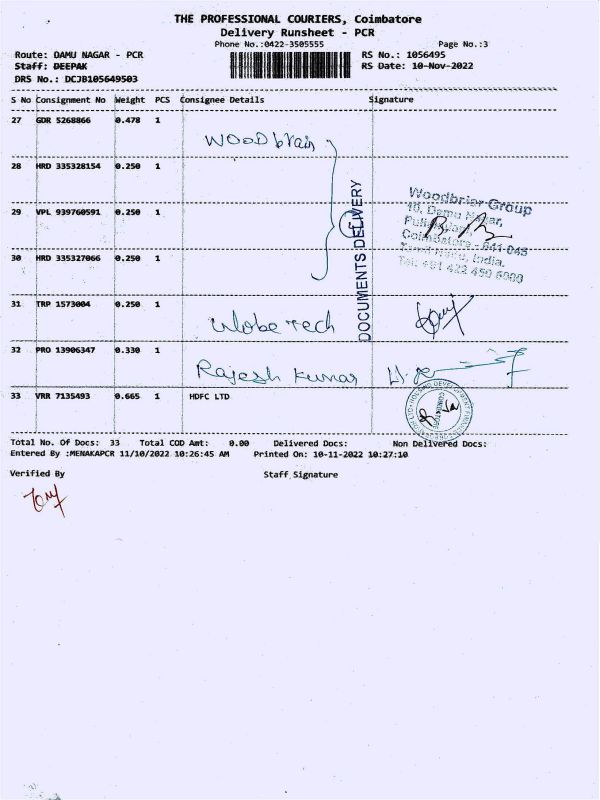 THE PROFESSIONAL COURIERS, Coimbatore
Delivery Runsheet - PCR
Phone No.:0422-3505555 Page No.:3
Route: DAMU NAGAR - PCR RS No.: 1056495
Staff: DEEPAK RS Date: 10-Nov-2022
DRS No.: DCJB105649503
S No Consignment No Weight PCS Consignee Details Signature
27 GDR 5268866 0.478 1
WOODbrain
28 HRD 335328154 0.250 1
DOCUMENTS DELIVERY
29 VPL 939760591 0.250 1
Woodbrier Group
10, Damu Nagar,
Coimbatore - 641 045
Tamil Nadu, India.
Tel: +91 422 450 5000
30 HRD 335327066 0.250 1
31 TRP 1573004 0.250 1
Globe Tech
32 PRO 13906347 0.330 1
Rajesh Kumar
33 VRR 7135493 0.665 1 HDFC LTD
Total No. Of Docs: 33 Total COD Amt: 0.00 Delivered Docs: Non Delivered Docs:
Entered By :MENAKAPCR 11/10/2022 10:26:45 AM Printed On: 10-11-2022 10:27:10
Verified By Staff Signature